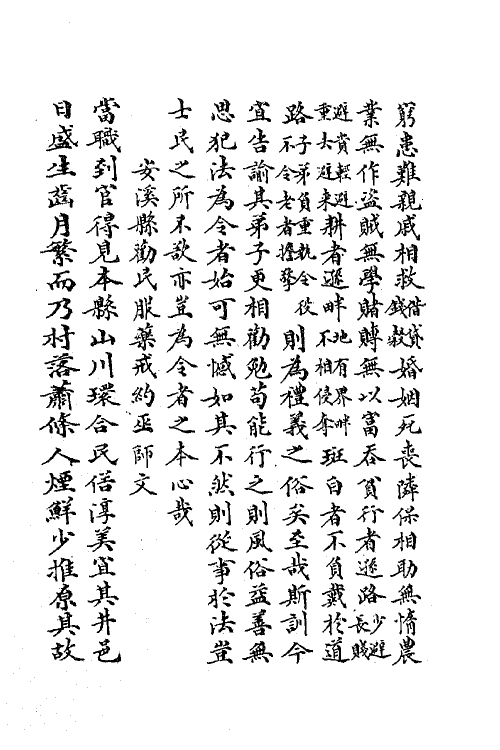 窮患難親戚相救借貸錢穀婚姻死喪隣保相助無惰農
業無作盜賊無學賭賻無以富吞貧行者遜路少避長賤
避貴輕避重去避来耕者遜畔地有界畔不相侵奪班白者不負戴於道
路子弟負重執役不令老者擔擎則為禮義之俗矣至哉斯訓今
宜告諭其弟子更相勸勉苟能行之則風俗益善無
思犯法為令者始可無憾如其不然則從事於法豈
士民之所不欲亦豈為令者之本心哉
安溪縣勸民服藥戒約巫師文
當職到官得見本縣山川環合民俗淳美宜其井邑
日盛生齒月繁而乃村落蕭條人煙鮮少推原其故